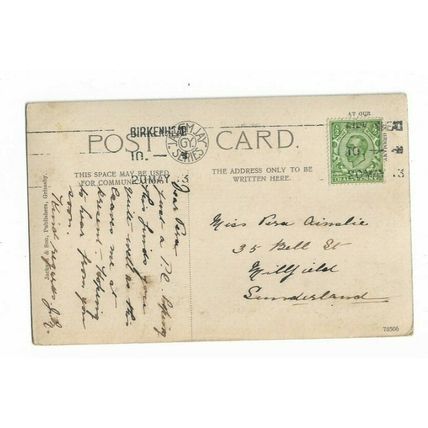 BIRKENHEAD
10.–
20 MAY 13
POST CARD.
THIS SPACE MAY BE USED
FOR COMMUNICATION
THE ADDRESS ONLY TO BE
WRITTEN HERE.
Dear Vera
Just a P.C. hoping
this finds you
quite well as this
leaves me at
present hoping
to hear from you
soon.
Kind regards
Miss Vera Ainslie
35 Bell St
Millfield
Sunderland
& Son, Publishers, Grimsby.
JAY EM JAY
SERIES
AT OUR
78506